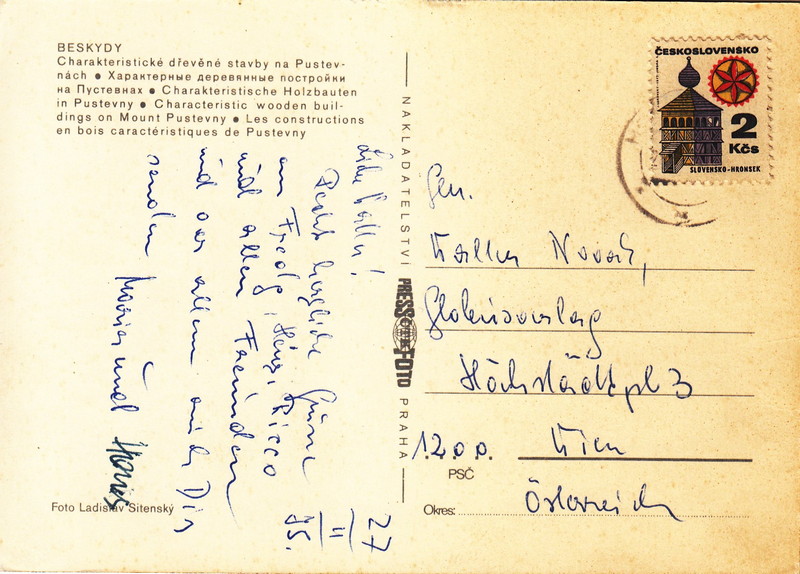 BESKYDY
Charakteristické dřevěné stavby na Pustev-
nách ● Характерные деревянные постройки
на Пустевнах ● Charakteristische Holzbauten
in Pustevny ● Characteristic wooden buil-
dings on Mount Pustevny ● Les constructions
en bois caractéristiques de Pustevny
27
II
75.
Recht herzliche Grüße
an Fredy, Heinz, Ricco
und allen Freunden
und vor allem auch Dir
senden
und
Foto Ladislav Sitenský
NAKLADATELSTVÍ PRESSFOTO PRAHA
ČESKOSLOVENSKO
2
Kčs
SLOVENSKO-HRONSEK
Gen.
Walter Novak,
Globusverlag
Höchstädtpl 3
1200 Wien
PSČ
Österreich
Okres: